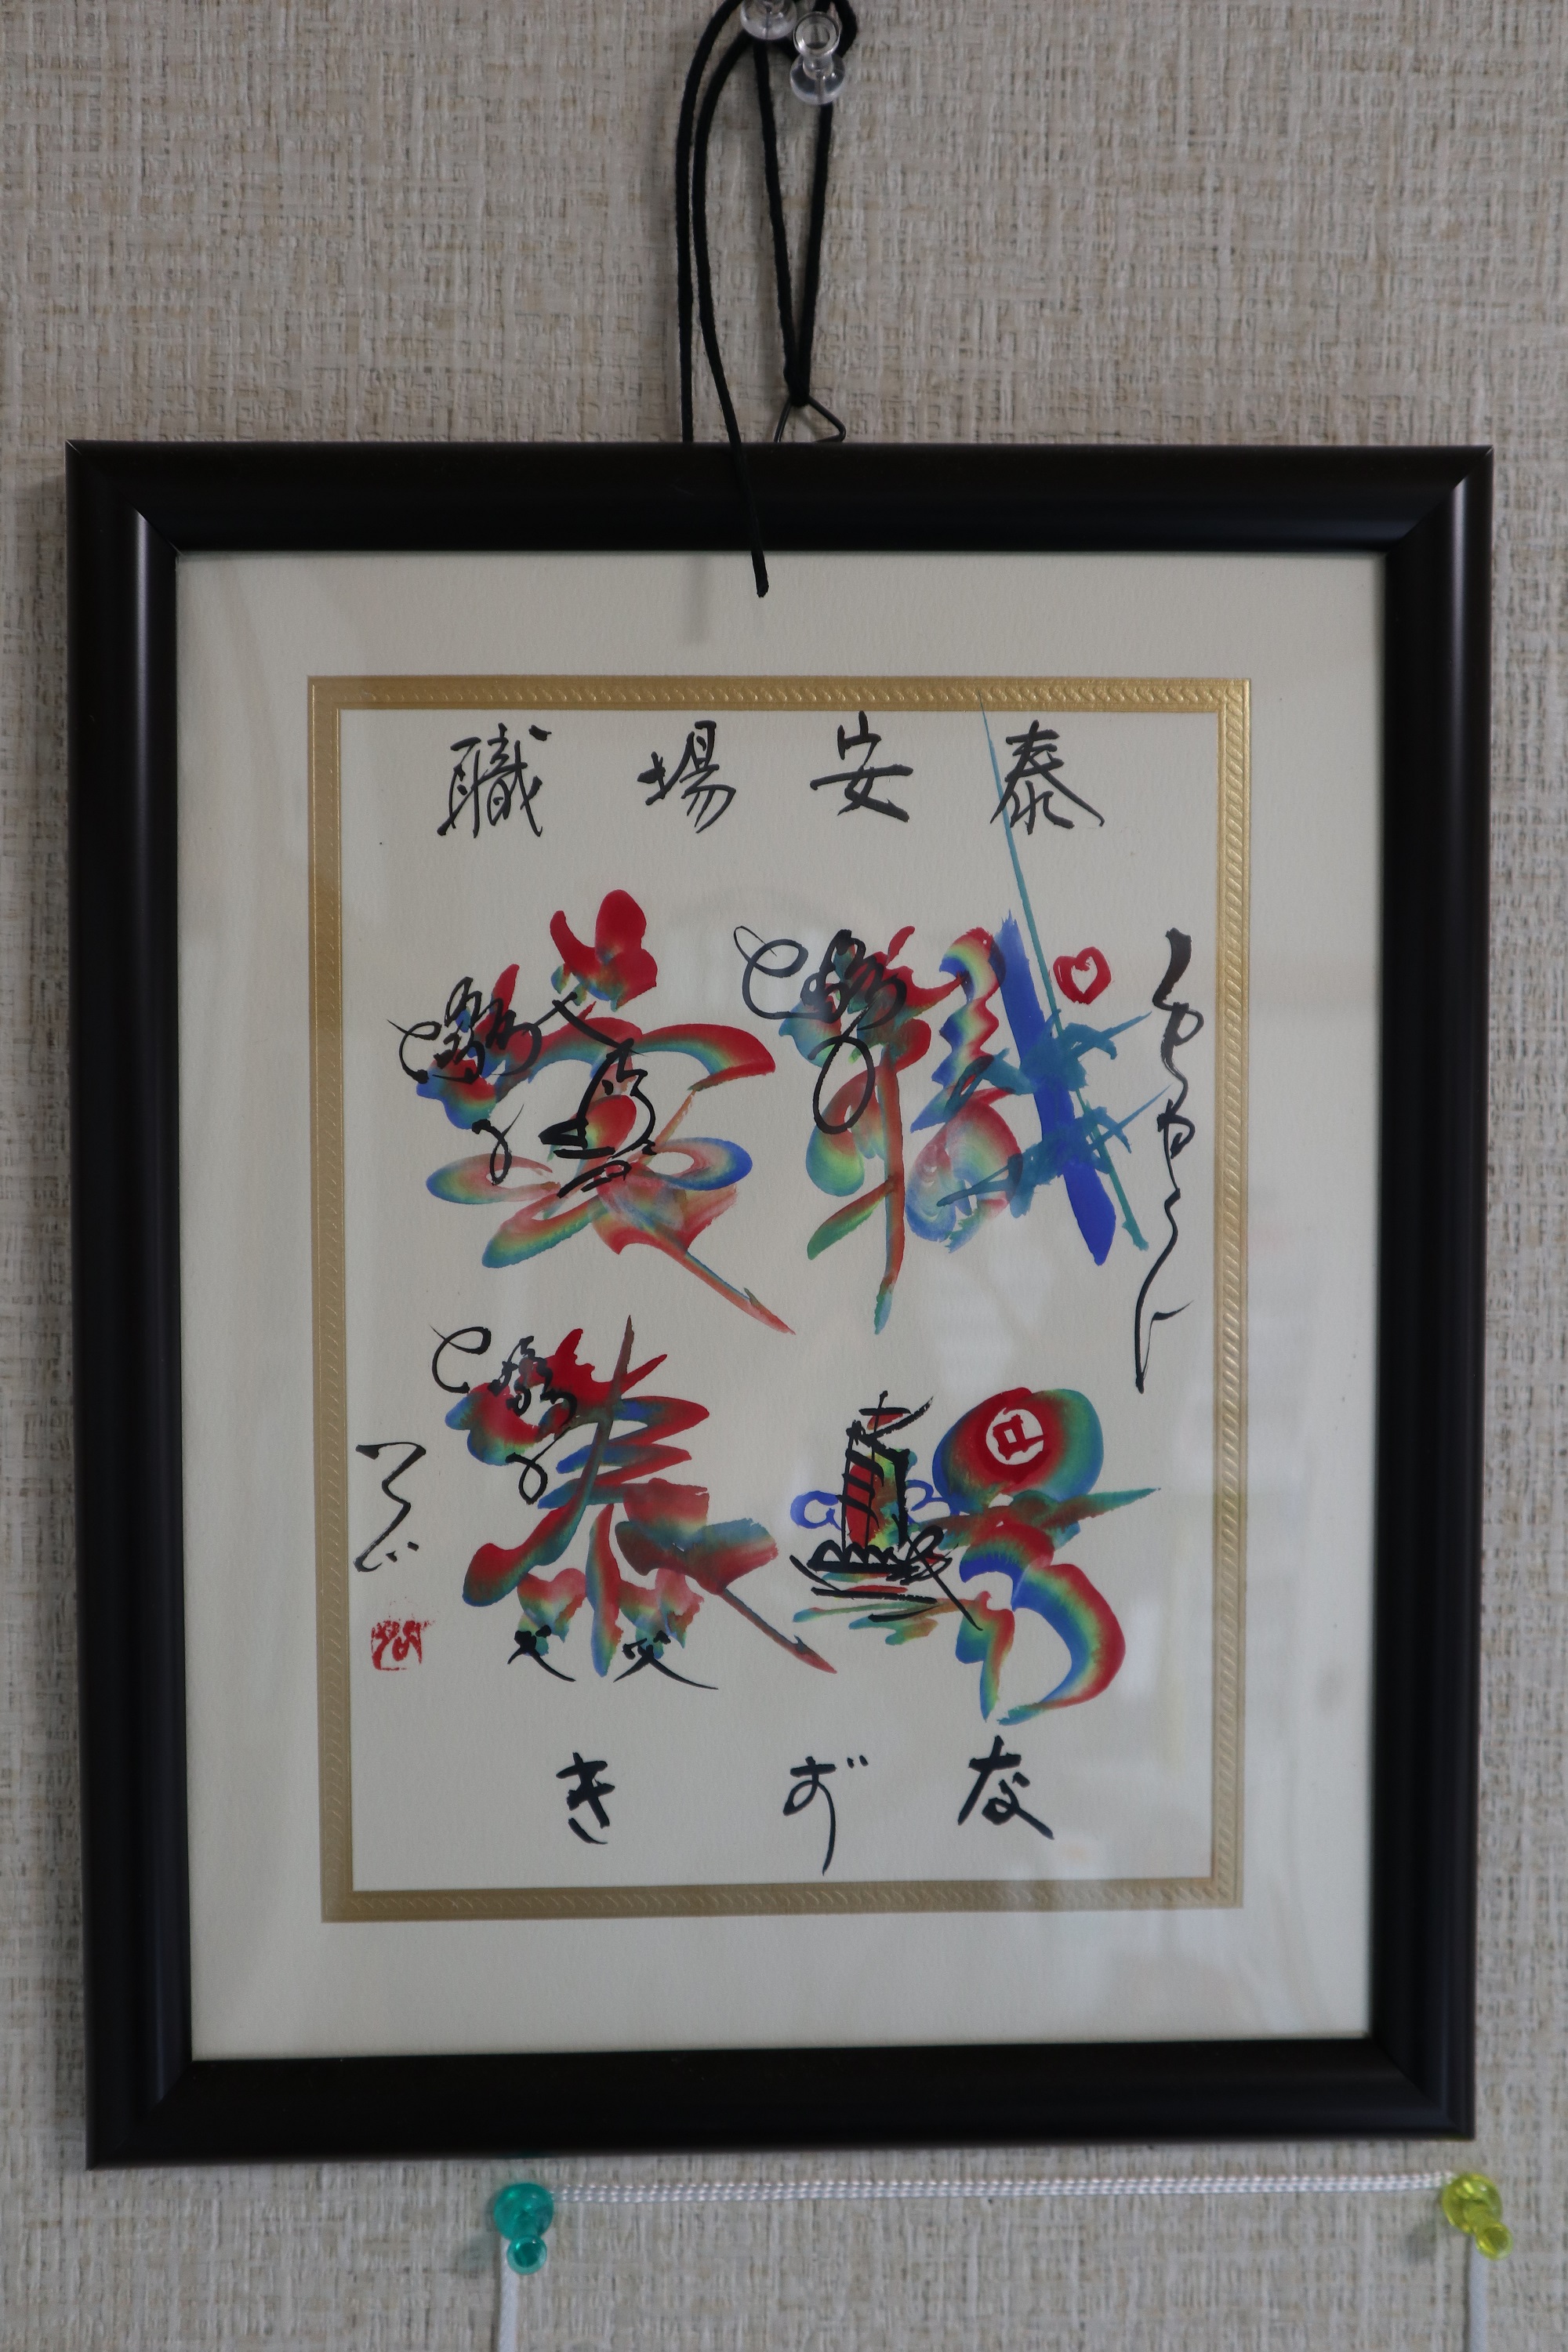 職場安泰
職場
安泰
きずな